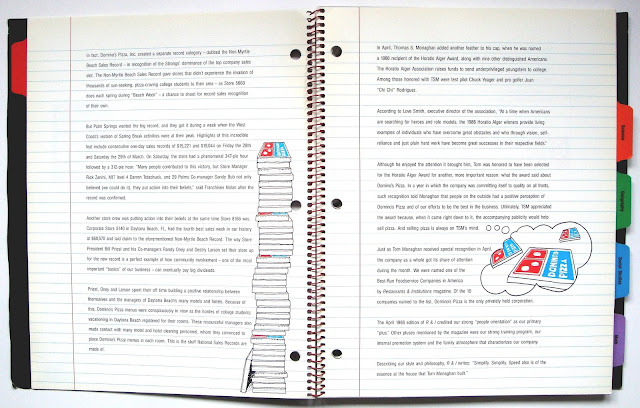 In fact, Domino's Pizza, Inc. created a separate record category – dubbed the Non-Myrtle
Beach Sales Record – in recognition of the Strongs' dominance of the top company sales
slot. The Non-Myrtle Beach Sales Record gave stores that didn't experience the invasion of
thousands of sun-seeking, pizza-craving college students to their area – as Store 5603
does each spring during "Beach Week" – a chance to shoot for record sales recognition
of their own.
But Palm Springs wanted the big record, and they got it during a week when the West
Coast's version of Spring Break activities were at their peak. Highlights of this incredible
feat include consecutive one-day sales records of $15,221 and $19,044 on Friday the 28th
and Saturday the 29th of March. On Saturday, the store had a phenomenal 347-pie hour
followed by a 312-pie hour. "Many people contributed to this victory, but Store Manager
Rick Zanini, MIT level 4 Darren and 29 Palms Co-manager Sandy Bub not only
believed (we could do it), they put action into their beliefs," said Franchisee Nolan after the
record was confirmed.
Another store crew was putting action into their beliefs at the same time Store 8166 was.
Corporate Store 5140 in Daytona Beach, FL, had the fourth best sales week in our history
at $60,570 and laid claim to the aforementioned Non-Myrtle Beach Record. The way Store
President Bill Priest and his Co-managers Randy Orey and Destry Larsen set their store up
for the new record is a perfect example of how community involvement – one of the most
important "basics" of our business – can eventually pay big dividends.
Priest, Orey and Larsen spent their off time building a positive relationship between
themselves and the managers of Daytona Beach's many motels and hotels. Because of
this, Domino's Pizza menus were conspicuously in view as the hordes of college students
vacationing in Daytona Beach registered for their rooms. These resourceful managers also
made contact with many motel and hotel cleaning personnel, whom they convinced to
place Domino's Pizza menus in each room. This is the stuff National Sales Records are
made of.
In April, Thomas S. Monaghan added another feather to his cap, when he was named
a 1986 recipient of the Horatio Alger Award, along with nine other distinguished Americans.
The Horatio Alger Association raises funds to send underprivileged youngsters to college.
Among those honored with TSM were test pilot Chuck Yeager and pro golfer Juan
"Chi Chi" Rodriguez.
According to Love Smith, executive director of the association, "At a time when Americans
are searching for heroes and role models, the 1986 Horatio Alger winners provide living
examples of individuals who have overcome great obstacles and who through vision, self-
reliance and just plain hard work have become great successes in their respective fields."
Although he enjoyed the attention it brought him, Tom was honored to have been selected
for the Horatio Alger Award for another, more important reason: what the award said about
Domino's Pizza. In a year in which the company was committing itself to quality on all fronts,
such recognition told Monaghan that people on the outside had a positive perception of
Domino's Pizza and of our efforts to be the best in the business. Ultimately, TSM appreciated
the award because, when it came right down to it, the accompanying publicity would help
sell pizza. And selling pizza is always on TSM's mind.
Just as Tom Monaghan received special recognition in April,
the company as a whole got its share of attention
during the month. We were named one of the
Best-Run Foodservice Companies in America
by Restaurants & Institutions magazine. Of the 10
companies named to the list, Domino's Pizza is the only privately held corporation.
The April 1986 edition of R & I credited our strong "people orientation" as our primary
"plus." Other pluses mentioned by the magazine were our strong training program, our
internal promotion system and the family atmosphere that characterizes our company.
Describing our style and philosophy, R & I writes: "Simplify. Simplify. Speed also is of the
essence at the house that Tom Monaghan built."
DOMINO'S
PIZZA
Science
Geography
Social Studies
Math